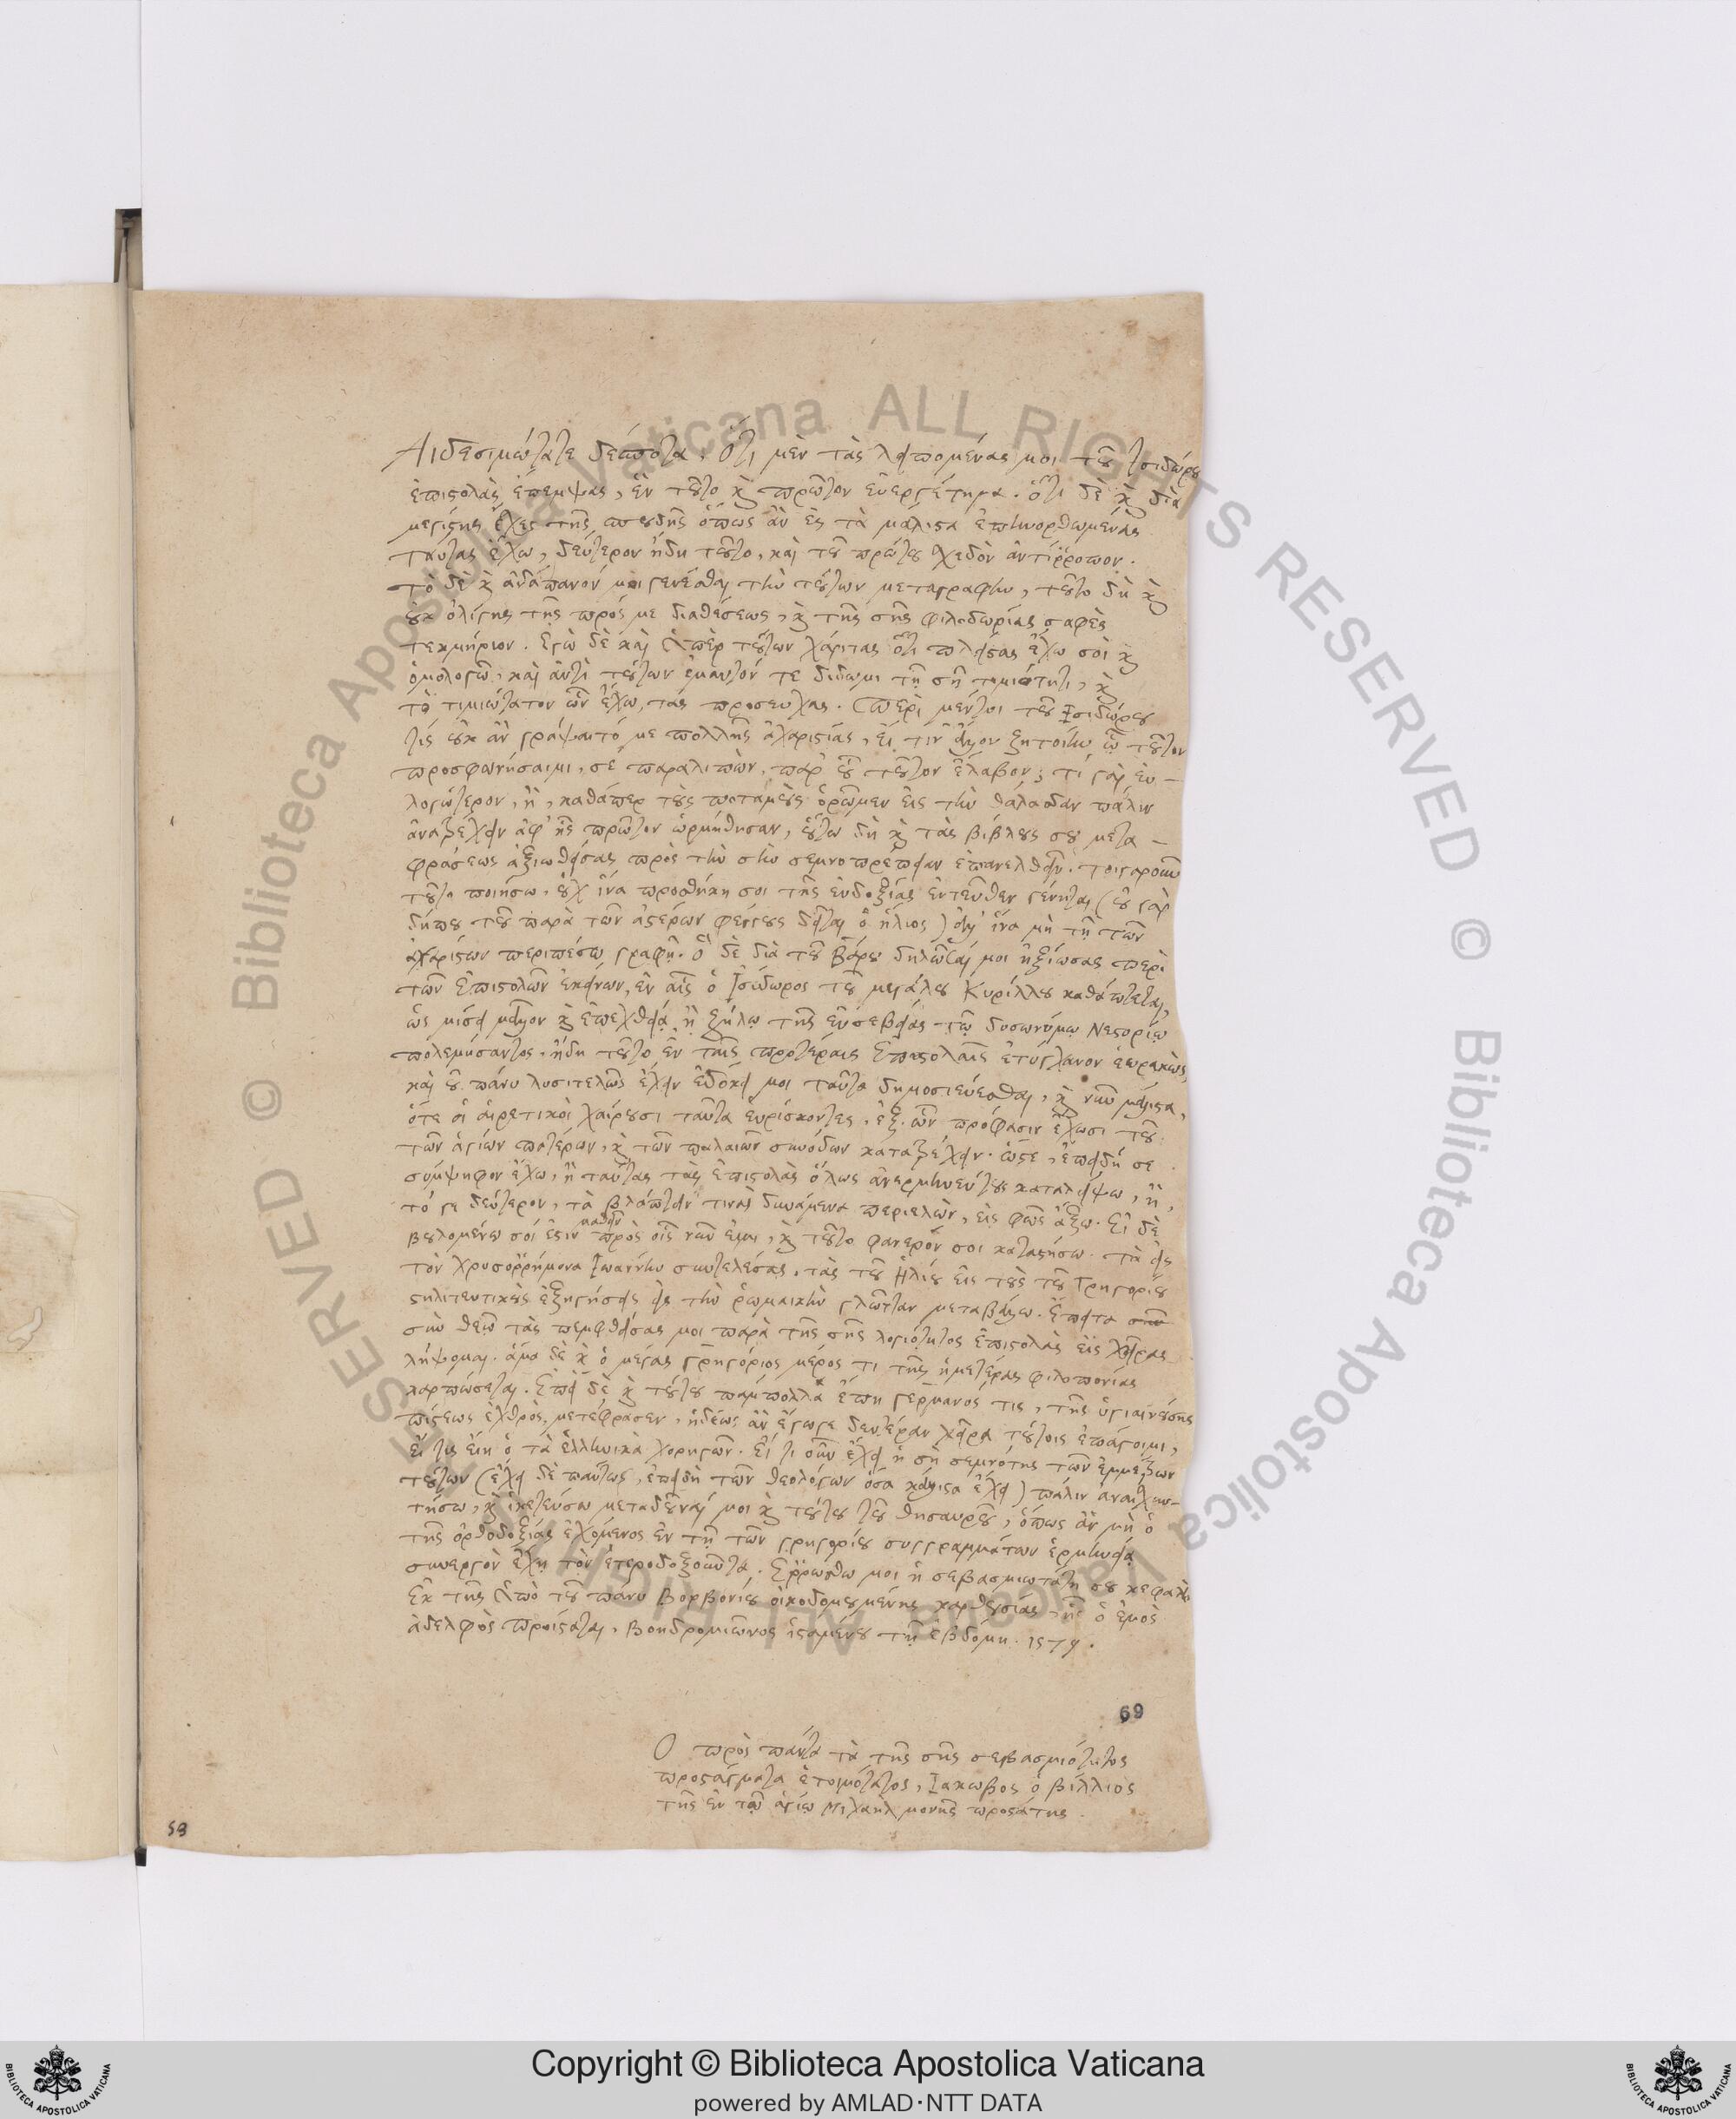 Αἰδεσιμώτατε δέσποτα, Ὅτι μὲν τὰς λειπομένας μοι τοῦ Ἰσιδώρου
ἐπιστολὰς ἔπεμψας, ἓν τοῦτο καὶ πρῶτον εὐεργέτημα. ὅτι δὲ καὶ διὰ
μεγίστης ἔχες τῆς σπουδῆς ὅπως ἂν ἐς τὰ μάλιστα ἐπηνορθωμένας
ταύτας ἔχω, δεύτερον ἤδη τοῦτο, καὶ τοῦ πρώτου σχεδὸν ἀντίῤῥοπον.
τὸ δὲ καὶ ἀδάπανόν μοι γενέσθαι τὴν τούτων μεταγραφὴν, τοῦτο δὴ καὶ
οὐκ ὀλίγης τῆς πρός με διαθέσεως, καὶ τῆς σῆς φιλοδωρίας σαφὲς
τεκμήριον. Ἐγὼ δὲ καὶ ὑπὲρ τούτων χάριτας ὅτι πλείστας ἔχω σοὶ καὶ
ὁμολογῶ, καὶ ἀντὶ τούτων ἐμαυτόν τε δίδωμι τῇ σῇ τιμιότητι, καὶ
τὸ τιμιώτατον ὧν ἔχω, τὰς προσευχάς. Περὶ μέντοι τοῦ Ἰσιδώρου
τίς οὐκ ἂν γράψαιτό με πολλῆς ἀχαριστίας, εἴ τιν' ἄλλον ζητοίην ᾧ τοῦτον
προσφωνήσαιμι, σε παραλιπὼν, παρ' οὗ τοῦτον ἔλαβον; τί γὰρ εὐ-
λογώτερον, ἢ, καθάπερ τοὺς ποταμοὺς ὁρῶμεν εἰς τὴν θάλασσαν πάλιν
ἀνατρέχειν ἀφ' ἧς πρῶτον ὡρμήθησαν, οὕτω δὴ καὶ τὰς βίβλους σου μετα-
φράσεως ἀξιωθείσας πρὸς τὴν σὴν σεμνοπρέπειαν ἐπανελθεῖν. τοιγαροῦν
τοῦτο ποιήσω, οὐχ ἵνα προσθήκη σοι τῆς εὐδοξίας ἐντεῦθεν γένηται (οὐ γὰρ
δήπου τοῦ παρὰ τῶν ἀστέρων φέγγους δεῖται ὁ ἥλιος) ἀλλ' ἵνα μὴ τῇ τῶν
ἀχαρίστων περιπέσω γραφῇ. Ὃ δὲ διὰ τοῦ Βάρου δηλῶσαί μοι ἠξίωσας περὶ
τῶν ἐπιστολῶν ἐκείνων, ἐν αἷς ὁ Ἰσίδωρος τοῦ μεγάλου Κυρίλλου καθάπτεται,
ὡς μίσει μᾶλλον καὶ ἐπεχθείᾳ ἢ ζήλῳ τῆς εὐσεβείας τῷ δυσωνύμῳ Νεστορίῳ
πολεμήσαντος, ἤδη τοῦτο ἐν ταῖς προτέραις ἐπιστολαῖς ἐτύγχανον ἑωρακὼς,
καὶ οὐ πάνυ λυσιτελῶς ἔχειν ἐδόκει μοι ταῦτα δημοσιεύεσθαι, καὶ νῦν μάλιστα,
ὅτε οἱ αἱρετικοὶ χαίρουσι ταῦτα εὑρίσκοντες, ἐξ ὧν πρόφασιν ἔχωσι τοῦ
τῶν ἁγίων πατέρων, καὶ τῶν παλαιῶν συνόδων κατατρέχειν. ὥστε, ἐπειδή σε
σύμψηφον ἔχω, ἢ ταύτας τὰς ἐπιστολὰς ὅλως ἀνερμηνεύτους καταλείψω, ἢ,
τό γε δεύτερον, τὰ βλάπτειν τινὰς δυνάμενα περιελὼν, εἰς φῶς ἄξω. Εἰ δὲ
βουλομένῳ σοί ἐστιν μαθεῖν πρὸς οἷς νῦν εἰμι, καὶ τοῦτο φανερόν σοι καταστήσω. τὰ εἰς
τὸν χρυσοῤῥήμονα Ἰωάννην συντελέσας, τὰς τοῦ Ἠλίου εἰς τοὺς τοῦ Γρηγορίου
στηλιτευτικοὺς ἐξηγήσεις εἰς τὴν ῥωμαικὴν γλῶτταν μεταβάλλω. Ἔπειτα
σὺν θεῷ τὰς πεμφθείσας μοι παρὰ τῆς σῆς λογιότητος ἐπιστολὰς εἰς χεῖρας
λήψομαι. ἅμα δὲ καὶ ὁ μέγας Γρηγόριος μέρος τι τῆς ἡμετέρας φιλοπονίας
καρπώσεται. Ἐπεὶ δὲ καὶ τούτου παμπολλὰ ἔπη γερμανός τις, τῆς ὑγιαινούσης
πίστεως ἐχθρὸς, μετέφρασεν, ἡδέως ἂν ἔγωγε δευτέραν χεῖρα τούτοις ἐπάγοιμι,
εἴ τις εἴη ὁ τὰ ἑλληνικὰ χορηγῶν. Εἴ τι οὖν ἔχει ἡ σὴ σεμνότης τῶν ἐμμέτρων
τούτων (ἔχει δὲ πάντως, ἐπειδὴ τῶν θεολόγων ὅσα κάλλιστα ἔχει) πάλιν ἀναισχυν-
τήσω, καὶ ἱκετεύσω μεταδοῦναί μοι καὶ τούτου τοῦ θησαυροῦ, ὅπως ἂν μὴ ὁ
τῆς ὀρθοδοξίας ἐχόμενος ἐν τῇ τῶν γρηγορίου συγγραμμάτων ἑρμηνείᾳ
συνεργὸν ἔχῃ τὸν ἑτεροδοξοῦντα. Ἐῤῥώσθω μοι ἡ σεβασμιωτάτη σου κεφαλή.
Ἐκ τῆς ὑπὸ τοῦ πάνυ Βορβονίου οἰκοδομουμένης καρθουσίας, ἧς ὁ ἐμὸς
ἀδελφὸς προΐσταται, βοηδρομιῶνος ἱσταμένου τῇ ἑβδόμῃ. 1579.
69
Ὁ πρὸς πάντα τὰ τῆς σῆς σεβασμιότητος
προστάγματα ἑτοιμότατος, Ἰάκωβος ὁ βίλλιος
τῆς ἐν τῷ ἁγίῳ Μιχαὴλ μονῆς προστάτης.
58
© Biblioteca Apostolica Vaticana ALL RIGHTS RESERVED © Biblioteca Apostolica Vaticana ALL RIGHTS RESERVED
Copyright © Biblioteca Apostolica Vaticana
powered by AMLAD·NTT DATA
BIBLIOTECA APOSTOLICA VATICANA
BIBLIOTECA APOSTOLICA VATICANA